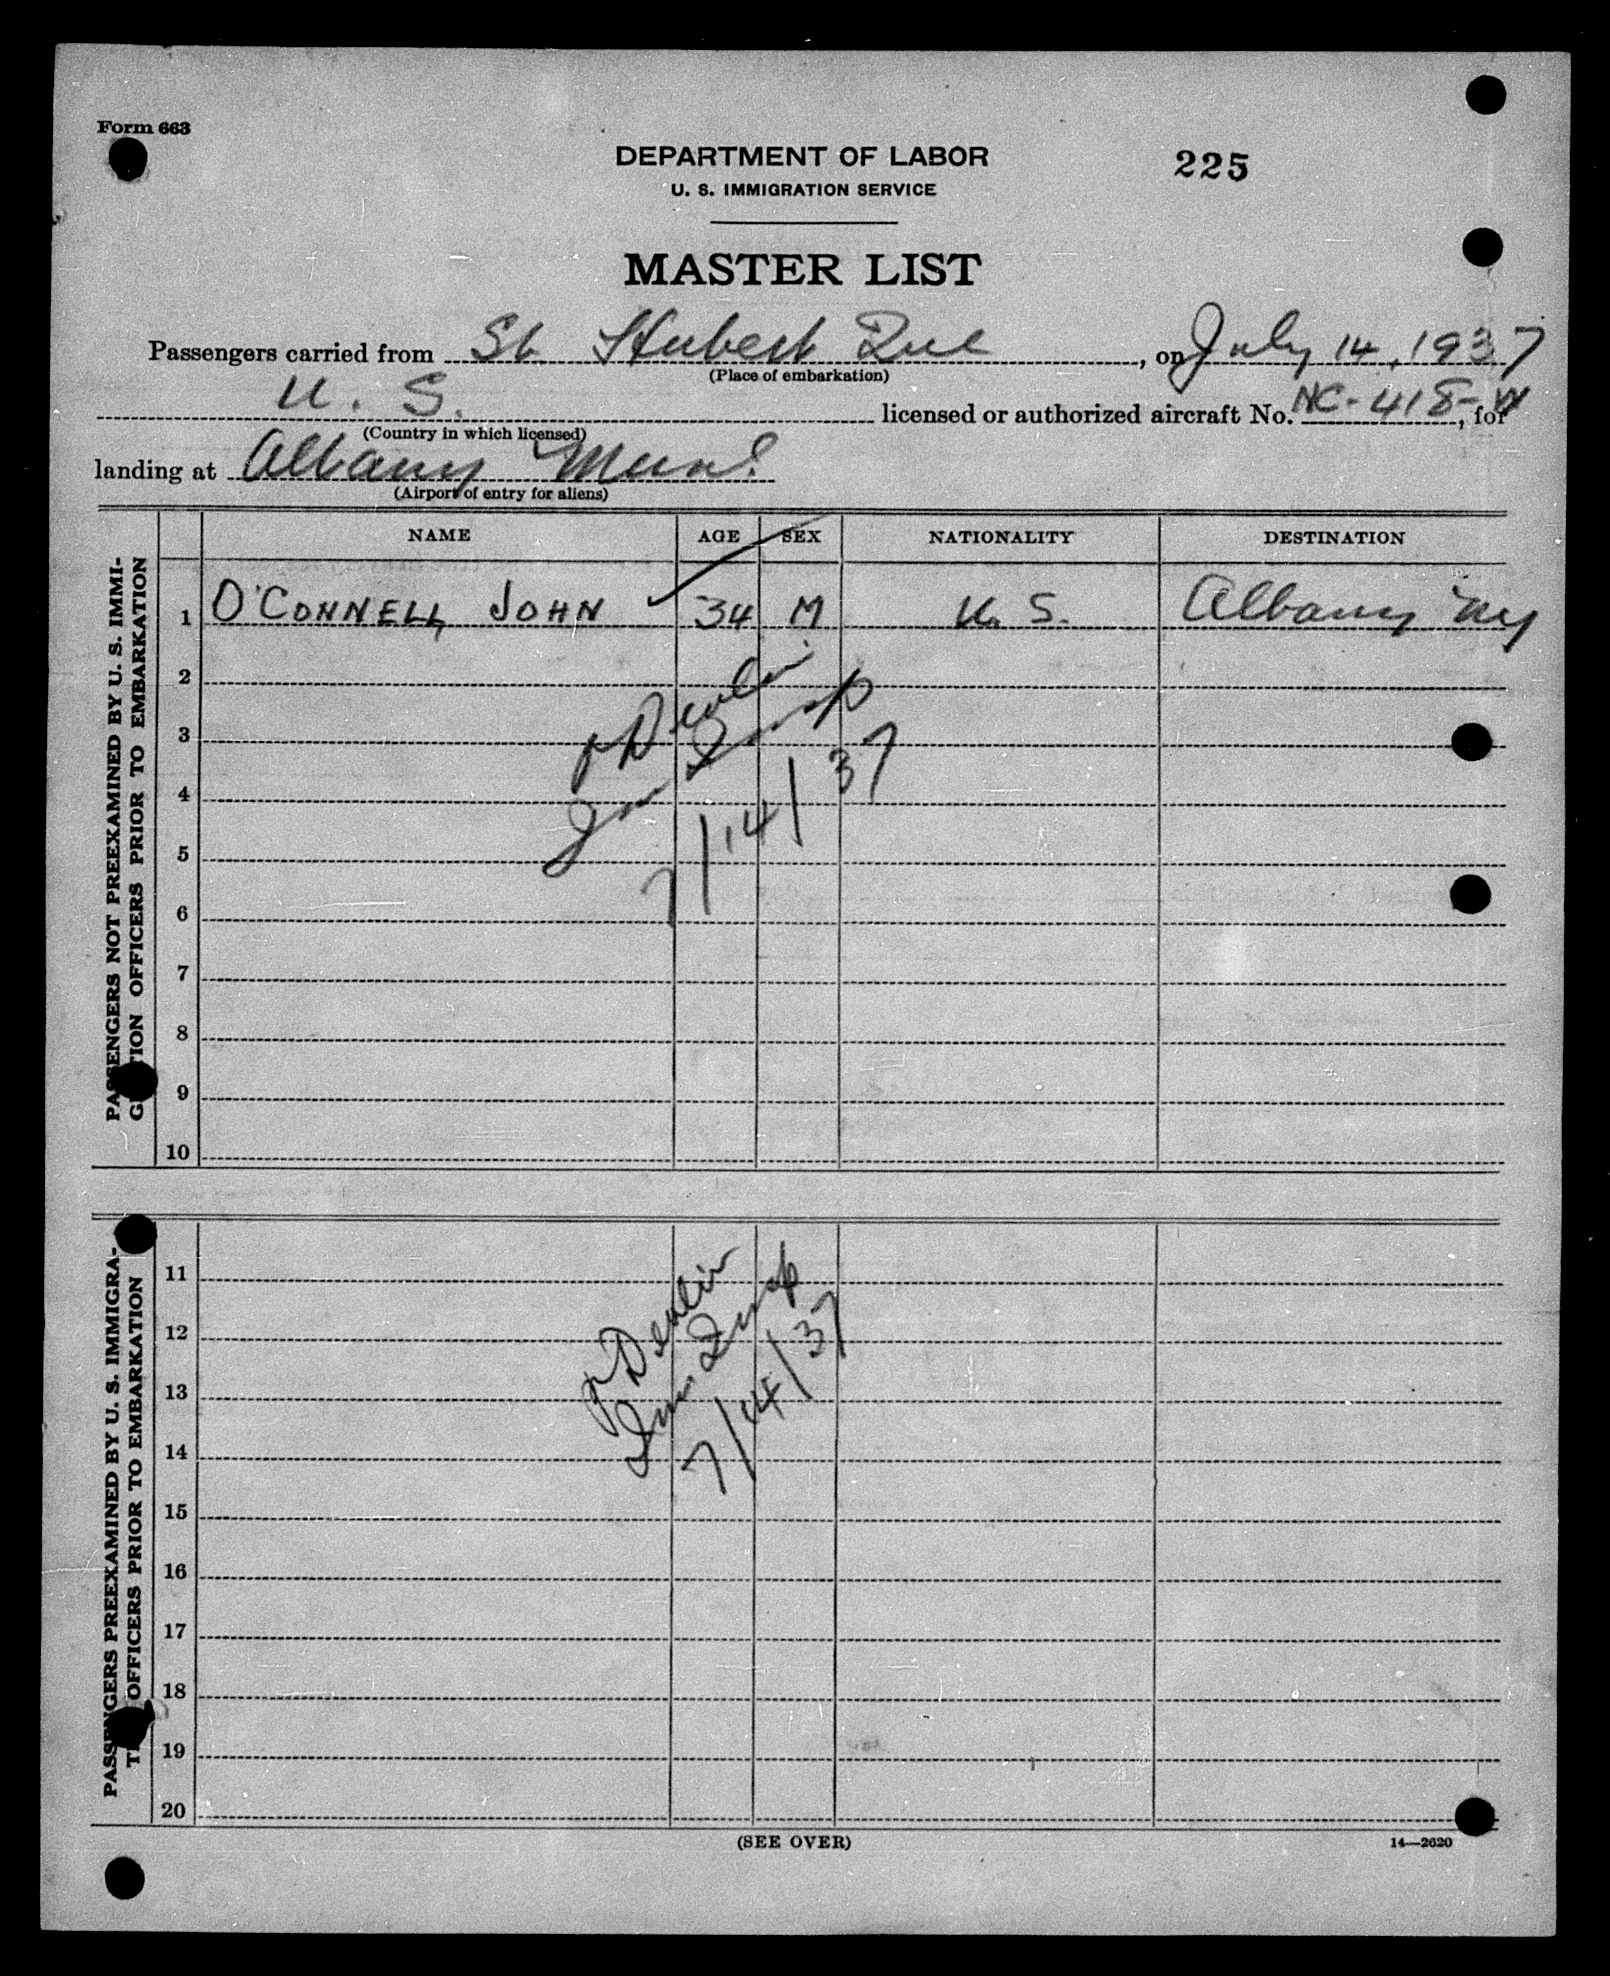 Form 663
DEPARTMENT OF LABOR
225
U. S. IMMIGRATION SERVICE
MASTER LIST
Passengers carried from St. Hubert Que, on July 14, 1937
(Place of embarkation)
U. S. licensed or authorized aircraft No. NC-418-W, for
(Country in which licensed)
landing at Albany Mun.
(Airport of entry for aliens)
NAME AGE SEX NATIONALITY DESTINATION
PASSENGERS NOT PREEXAMINED BY U. S. IMMI-
GRATION OFFICERS PRIOR TO EMBARKATION
1 O'CONNELL, JOHN 34 M U. S. Albany NY
2
3
4
5
6
7
8
9
10
Devlin
Imm Insp
7/14/37
PASSENGERS PREEXAMINED BY U. S. IMMIGRA-
TION OFFICERS PRIOR TO EMBARKATION
11
12
13
14
15
16
17
18
19
20
Devlin
Imm Insp
7/14/37
(SEE OVER)
14—2620